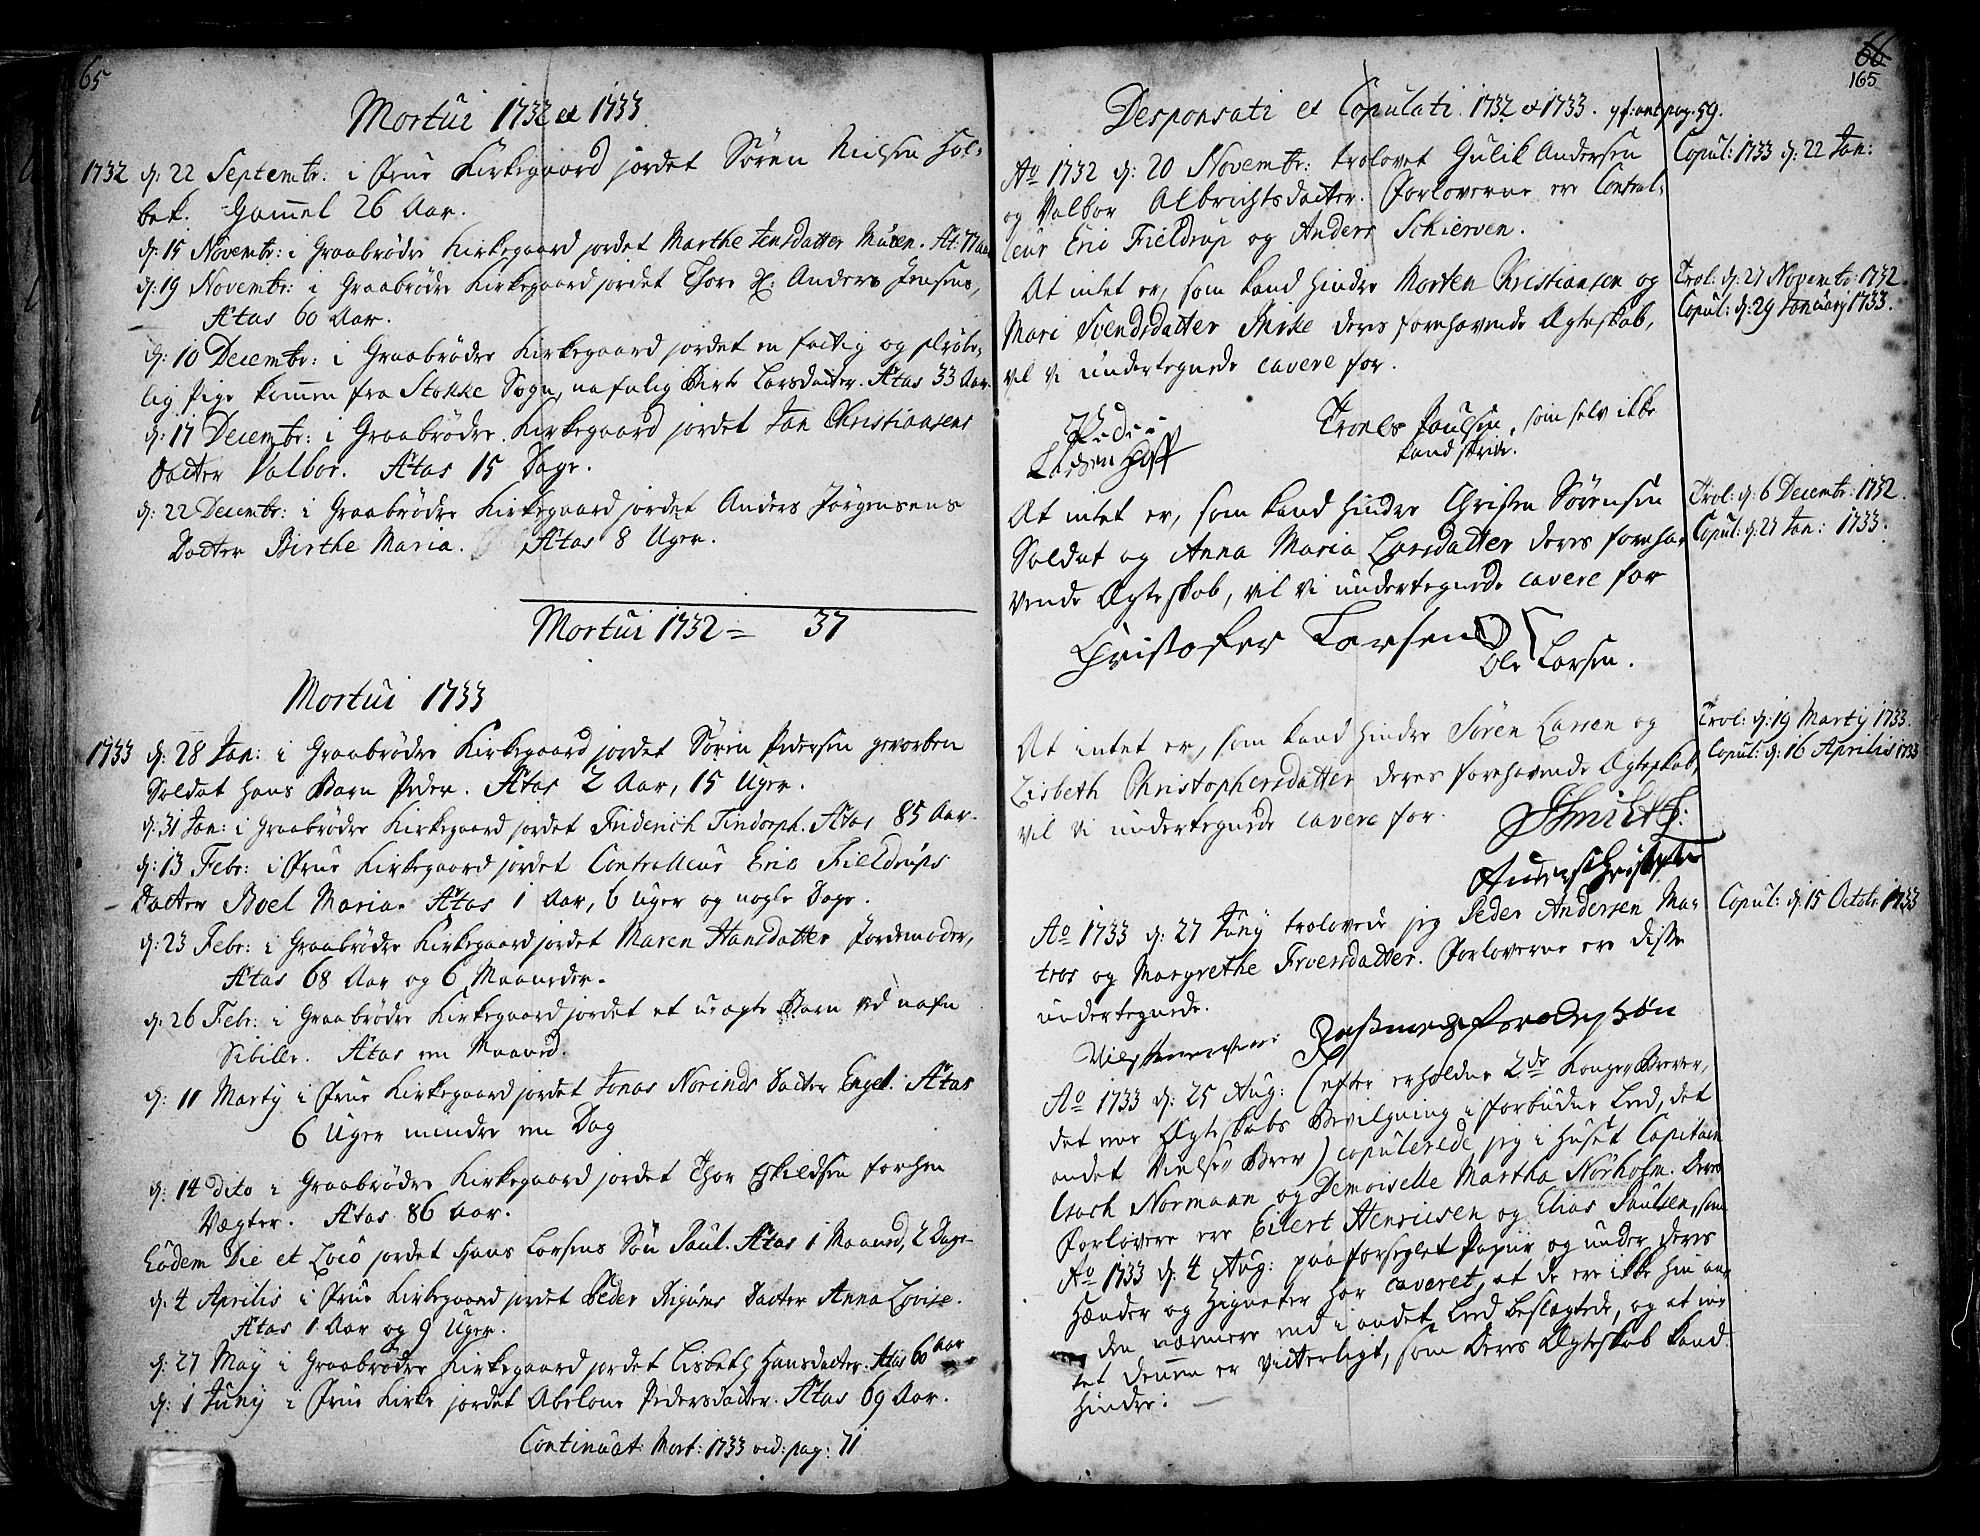 65
Mortui 1732 et 1733
1732 d: 22 Septembr: i Frue Kirkegaard jordet Sören Nielsen Hol-
bek. Gammel 26 Aar.
d: 15 Novembr: i Graabrödre Kirkegaard jordet Marthe Jensdatter Muren. Æt: 77 Aar
d: 19 Novembr: i Graabrödre Kirkegaard jordet Thore Anders Jensens,
Ætas 60 Aar.
d: 10 Decembr: i Graabrödre Kirkegaard jordet en fattig og skröbe-
lig Pige kommen fra Stokke Sogn, nafnlig Birte Larsdatter. Ætas 33 Aar.
d: 17 Decembr: i Graabrödre Kirkegaard jordet Jan Christiansens
Datter Valbor. Ætas 15 Dage.
d: 22 Decembr: i Graabrödre Kirkegaard jordet Anders Jörgensens
Datter Birthe Maria. Ætas 8 Uger.
Mortui 1732 = 37
Mortui 1733
1733 d: 28 Jan: i Graabrödre Kirkegaard jordet Sören Pedersen gevorben
Soldat hans Barn Peder. Ætas 2 Aar, 15 Uger.
d: 31 Jan: i Graabrödre Kirkegaard jordet Friderich Tindorph. Ætas 85 Aar.
d: 13 Febr: i Frue Kirkegaard jordet Controlleur Eric Fieldrups
Datter Boel Maria. Ætas 1 Aar, 6 Uger og nogle Dage.
d: 23 Febr: i Graabrödre Kirkegaard jordet Maren Hansdatter Jordemoder,
Ætas 68 Aar og 6 Maaneder.
d: 26 Febr: i Graabrödre Kirkegaard jordet et uægte Barn ved nafn
Sibille. Ætas en Maaned.
d: 11 Martij i Frue Kirkegaard jordet Jonas Norinds Datter Engel. Ætas
6 Uger mindre en Dag
d: 14 dito i Graabrödre Kirkegaard jordet Thor Eskildsen forhen
Vægter. Ætas 86 Aar.
Eödem Die et Locö jordet Hans Larsens Sön Paul. Ætas 1 Maaned, 2 Dage
d: 4 Aprilis i Frue Kirkegaard jordet Peder Datter Anna Lovise.
Ætas 1 Aar og 9 Uger.
d: 27 Maij i Graabrödre Kirkegaard jordet Lisbeth Hansdatter. Ætas 60 Aar
d: 1 Junij i Frue Kirke jordet Abelone Pedersdatter. Ætas 69 Aar.
Continuat: Mort: 1733 vid: pag: 71
66
165
Desponsati et Copulati 1732 et 1733. pag. 59.
Ao 1732 d: 20 Novembr: trolovet Gulik Andersen
og Valbor Albrichtsdatter. Forloverne ere Control-
leur Eric Fieldrup og Anders Schierven.
Copul: 1733 d: 22 Jan:
At intet er, som kand hindre Morten Christiansen og
Mari Svendsdatter Birke deres forehavende Ægteskab,
vil vi undertegnede cavere for.
Trol: d: 27 Novembr: 1732.
Copul: d: 29 January 1733.
Peder
Larsen Hoff
Tronels Paulsen, som selv ikke
kand skrive.
At intet er, som kand hindre Christen Sörensen
Soldat og Anna Maria Larsdatter deres foreha-
vende Ægteskab, vil vi undertegnede cavere for
Trol: d: 6 Decembr: 1732.
Copul: d: 27 Jan: 1733.
Christofer Larsen
Ole Larsen.
At intet er, som kand hindre Sören Larsen og
Lisbeth Christophersdatter deres forehavende Ægteskab,
vil vi undertegnede cavere for.
Trol: d: 19 Martij 1733.
Copul: d: 16 Aprilis 1733
Ao 1733 d: 27 Junij trolovede jeg Peder Andersen Ma-
tros og Margrethe Troersdatter. Forloverne ere disse
undertegnede.
Copul: d: 15 Octobr 1733
Ao 1733 d: 25 Aug: (efter erholdne 2de Konge-Brever,
det ene Ægteskabs Bevilgning i forbudne Leed, det
andet Vielse Brev) copulerede jeg i Huset Capitain
Isach Normann og Demoiselle Martha Nörholm. Deres
Forlovere ere Eilert Henricsen og Elias Paulsen, som
Ao 1733 d: 4 Aug: paa forseglet Papir og under deres
Hænder og Signeter har caveret, at de ere ikke hin an-
den nærmere end i andet Leed beslægtede, og at in-
tet dennem er vitterligt, som deres Ægteskab kand
hindre.